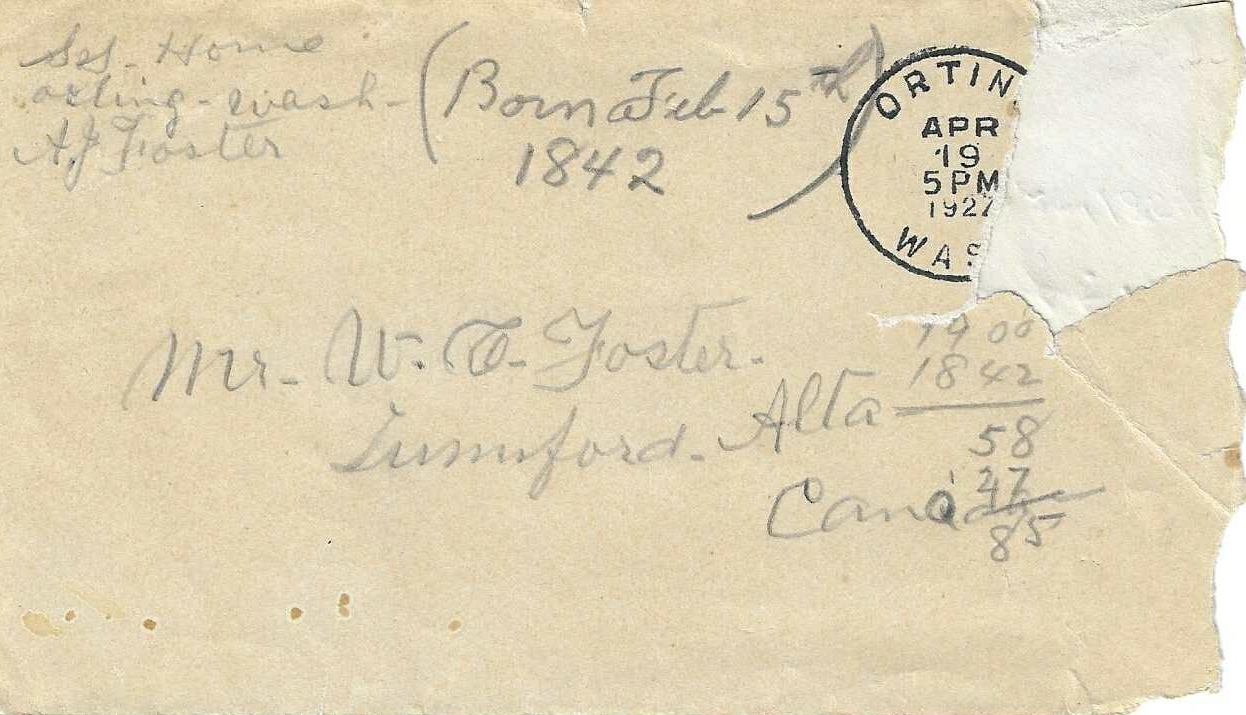 Sols. Home
orting - wash -
A.J Foster
(Born Feb 15th
1842)
ORTIN
APR
19
5 PM
1927
WAS
Mr. W. T. Foster.
Lunnford. Alta
Canada
1900
1842
58
27
85